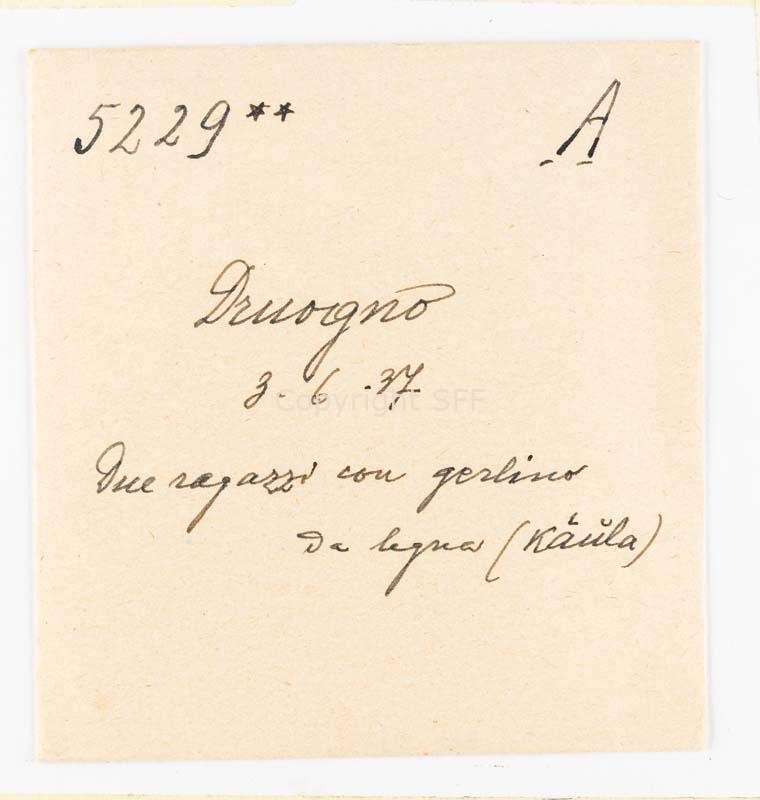 5229** A
Druogno
3. 6. 37.
Copyright SFF
Due ragazzi con gerlino
da legna (Káŭla)